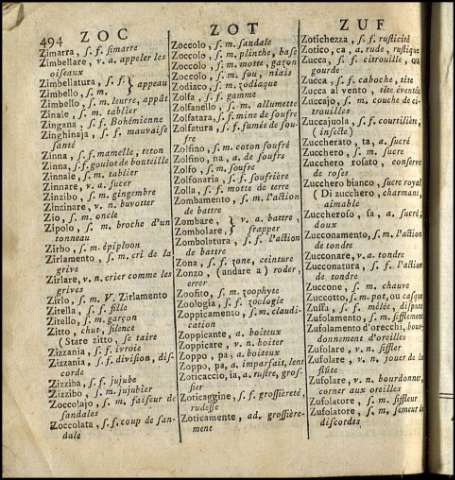 494 ZOC
Zimarra, ſ. f. ſimarre
Zimbellare, v. a. appeler les
oiſeaux
Zimbellatura, ſ. f. } appeau
Zimbello, ſ. m.
Zimbello, ſ. m. leurre, appât
Zinale, ſ. m. tablier
Zingana, ſ. f. Bohémienne
Zinghinaja, ſ. f. mauvaiſe
ſanté
Zinna, ſ. f. mamelle, teton
Zinna, ſ. f. goulot de bouteille
Zinnale, ſ. m. tablier
Zinnare, v. a. ſucer
Zinzibo, ſ. m. gingembre
Zinzinare, v. n. buvotter
Zio, ſ. m. oncle
Zipolo, ſ. m. broche d'un
tonneau
Zirbo, ſ. m. épiploon
Zirlamento, ſ. m. cri de la
grive
Zirlare, v. n. crier comme les
grives
Zirlo, ſ. m. V. Zirlamento
Zitella, ſ. f. fille
Zitello, ſ. m. garçon
Zitto, chut, ſilence
(Stare zitto, ſe taire
Zizzania, ſ. f. ivroie
Zizzania, ſ. f. diviſion, diſ-
corde
Zizziba, ſ. f. jujube
Zizzibo, ſ. m. jujubier
Zoccolajo, ſ. m. faiſeur de
ſandales
Zoccolata, ſ. f. coup de ſan-
dale
ZOT
Zoccolo, ſ. m. ſandale
Zoccolo, ſ. m. plinthe, baſe
Zoccolo, ſ. m. motte, gazon
Zoccolo, ſ. m. ſou, niais
Zodiaco, ſ. m. zodiaque
Zolfa, ſ. f. gamme
Zolfanello, ſ. m. allumette
Zolfatara, ſ. f. mine de ſoufre
Zolfatura, ſ. f. fumée de ſou-
fre
Zolfino, ſ. m. coton ſoufré
Zolfino, na, a. de ſoufre
Zolfo, ſ. m. ſoufre
Zolfonaria, ſ. f. ſoufrière
Zolla, ſ. f. motte de terre
Zombamento, ſ. m. l'action
de battre
Zombare, } v. a. battre,
Zombolare, frapper
Zombolatura, ſ. f. l'action
de battre
Zona, ſ. f. zone, ceinture
Zonzo, (andare a) roder,
errer
Zoofito, ſ. m. zoophyte
Zoologia, ſ. f. zoologie
Zoppicamento, ſ. m. claudi-
cation
Zoppicante, a. boiteux
Zoppicare, v. n. boiter
Zoppo, pa, a. boiteux
Zoppo, pa, a. imparfait, lent
Zoticaccio, ia, a. ruſtre, groſ-
ſier
Zoticaggine, ſ. f. groſſiereté,
rudeſſe
Zoticamente, ad. groſſière-
ment
ZUF
Zotichezza, ſ. f. ruſticité
Zotico, ca, a. rude, ruſtique
Zucca, ſ. f. citrouille, ou
gourde
Zucca, ſ. f. caboche, tête
Zucca al vento, tête éventée
Zuccajo, ſ. m. couche de ci-
trouilles
Zuccajuola, ſ. f. courtilière,
(inſecte)
Zuccherato, ta, a. ſucré
Zucchero, ſ. m. ſucre
Zucchero roſato, conſerve
de roſes
Zucchero bianco, ſucre royal
(Di zucchero, charmant,
aimable
Zuccheroſo, ſa, a. ſucré,
doux
Zucconamento, ſ. m. l'action
de tondre
Zucconare, v. a. tondre
Zucconatura, ſ. f. l'action
de tondre
Zuccone, ſ. m. chauve
Zuccotto, ſ. m. pot, ou caſque
Zuffa, ſ. f. mêlée, diſpute
Zufolamento, ſ. m. ſifflement
Zufolamento d'orecchi, bour-
donnement d'oreilles
Zufolare, v. n. ſiffler
Zufolare, v. n. jouer de la
flûte
Zufolare, v. n. bourdonner,
corner aux oreilles
Zufolatore, ſ. m. ſiffleur
Zufolatore, ſ. m. ſemeur de
diſcordes